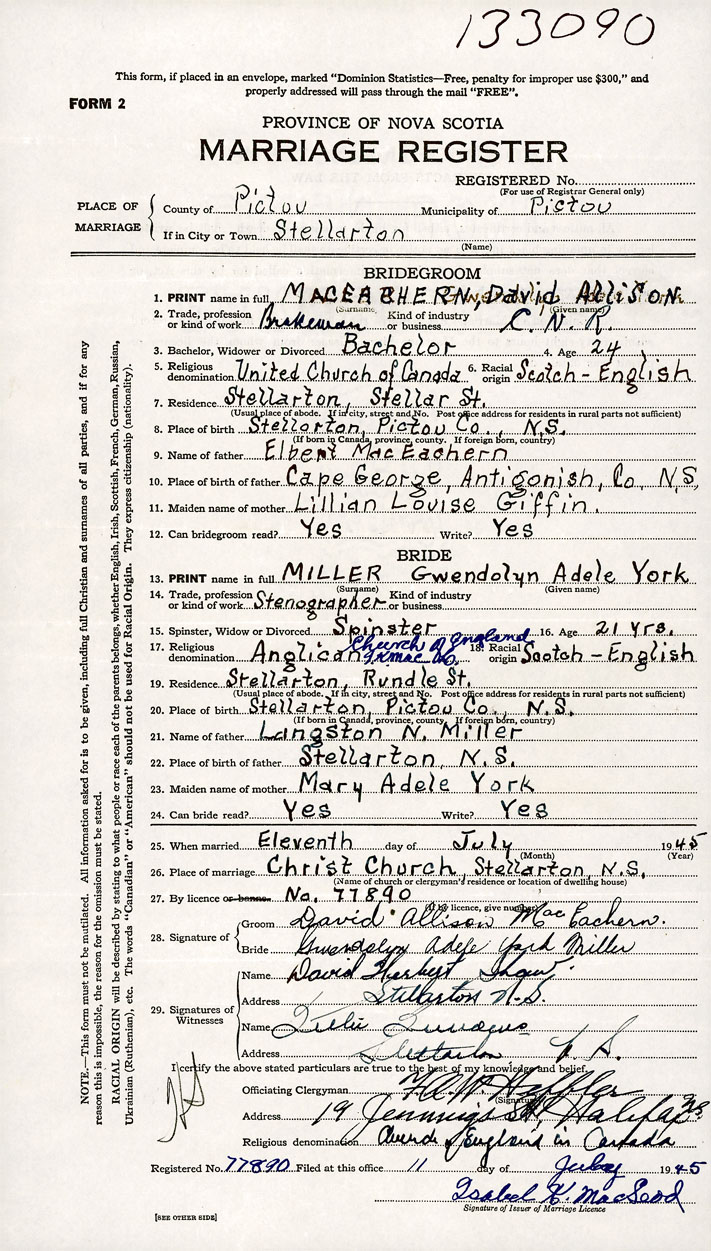 133090
This form, if placed in an envelope, marked "Dominion Statistics—Free, penalty for improper use $300," and
properly addressed will pass through the mail "FREE".
FORM 2
PROVINCE OF NOVA SCOTIA
MARRIAGE REGISTER
REGISTERED No.
(For use of Registrar General only)
PLACE OF MARRIAGE
County of Pictou Municipality of Pictou
If in City or Town Stellarton
(Name)
BRIDEGROOM
1. PRINT name in full MACEACHERN, David Allison
(Surname) (Given name)
2. Trade, profession or kind of work Brakeman Kind of industry or business C. N. R.
3. Bachelor, Widower or Divorced Bachelor 4. Age 24
5. Religious denomination United Church of Canada 6. Racial origin Scotch - English
7. Residence Stellarton, Stellar St.
(Usual place of abode. If in city, street and No. Post office address for residents in rural parts not sufficient)
8. Place of birth Stellarton, Pictou Co., N.S.
(If born in Canada, province, county. If foreign born, country)
9. Name of father Elbert MacEachern
10. Place of birth of father Cape George, Antigonish, Co. N.S.
11. Maiden name of mother Lillian Louise Giffin.
12. Can bridegroom read? Yes Write? Yes
BRIDE
13. PRINT name in full MILLER Gwendolyn Adele York
(Surname) (Given name)
14. Trade, profession or kind of work Stenographer Kind of industry or business
15. Spinster, Widow or Divorced Spinster 16. Age 21 yrs.
17. Religious denomination Anglican Church of England 18. Racial origin Scotch - English
19. Residence Stellarton, Rundle St.
(Usual place of abode. If in city, street and No. Post office address for residents in rural parts not sufficient)
20. Place of birth Stellarton, Pictou Co., N.S.
(If born in Canada, province, county. If foreign born, country)
21. Name of father Langston N. Miller
22. Place of birth of father Stellarton, N.S.
23. Maiden name of mother Mary Adele York
24. Can bride read? Yes Write? Yes
25. When married Eleventh day of July 1945
(Month) (Year)
26. Place of marriage Christ Church, Stellarton, N.S.
(Name of church or clergyman's residence or location of dwelling house)
27. By licence or banns No. 77890
(If by licence, give number)
28. Signature of
Groom David Allison MacEachern.
Bride Gwendolyn Adele York Miller
29. Signatures of Witnesses
Name David Herbert Shaw
Address Stellarton N.S.
Name
Address Stellarton N.S.
I certify the above stated particulars are true to the best of my knowledge and belief.
Officiating Clergyman
(Signature)
Address 19 Jennings St, Halifax NS
Religious denomination Church of England in Canada
Registered No. 77890 Filed at this office 11 day of July 1945
Isabel K. MacLeod
Signature of Issuer of Marriage Licence
[SEE OTHER SIDE]
NOTE.—This form must not be mutilated. All information asked for is to be given, including full Christian and surnames of all parties, and if for any
reason this is impossible, the reason for the omission must be stated.
RACIAL ORIGIN will be described by stating to what people or race each of the parents belongs, whether English, Irish, Scottish, French, German, Russian,
Ukrainian (Ruthenian), etc. The words "Canadian" or "American" should not be used for Racial Origin. They express citizenship (nationality).